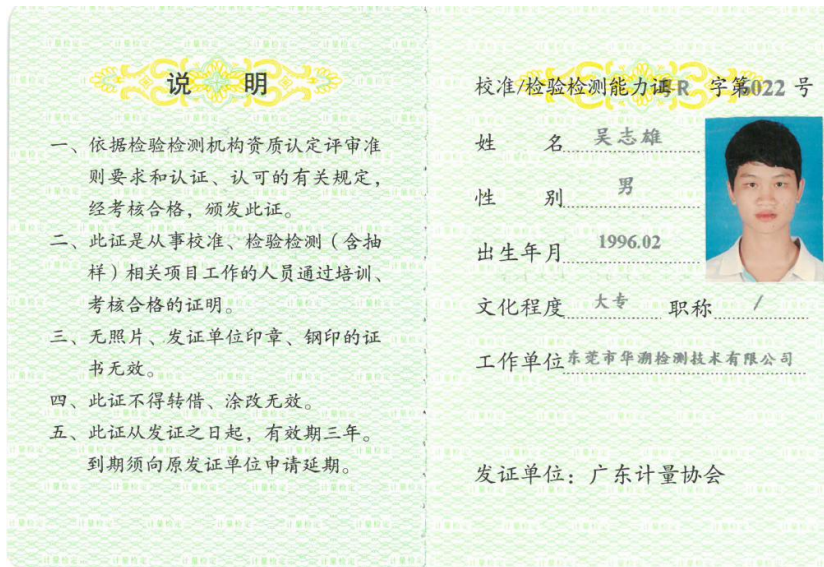 说 明
一、依据检验检测机构资质认定评审准
则要求和认证、认可的有关规定，
经考核合格，颁发此证。
二、此证是从事校准、检验检测（含抽
样）相关项目工作的人员通过培训、
考核合格的证明。
三、无照片、发证单位印章、钢印的证
书无效。
四、此证不得转借、涂改无效。
五、此证从发证之日起，有效期三年。
到期须向原发证单位申请延期。
校准/检验检测能力证粤R 字第6022 号
姓 名 吴志雄
性 别 男
出生年月 1996.02
文化程度 大专 职称 /
工作单位 东莞市华溯检测技术有限公司
发证单位：广东计量协会